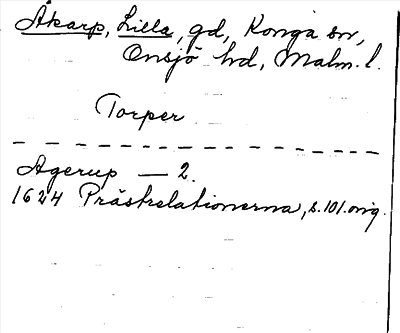 Åkarp, Lilla, gd, Konga sn,
Onsjö hd, Malm. l.
Torper
Agerup — 2.
1624 Prästrelationerna, s. 101. orig.